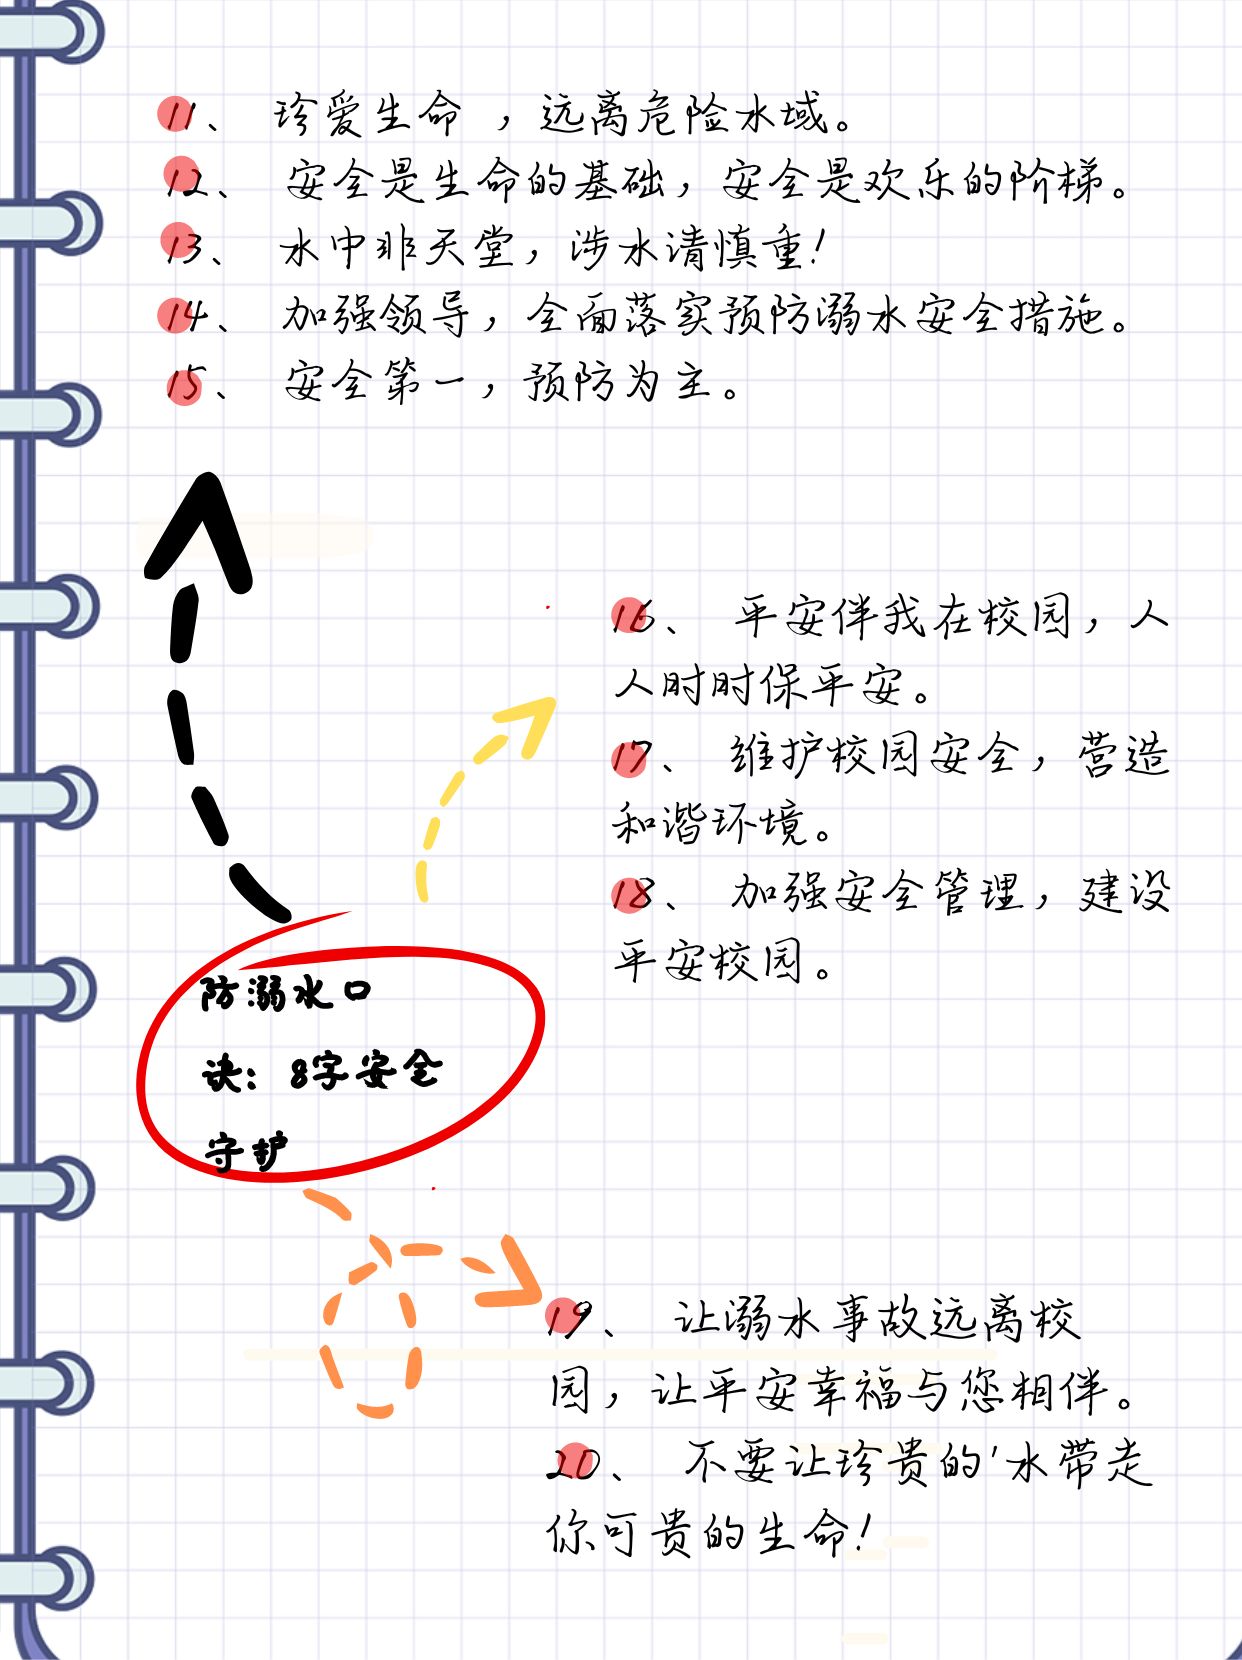 11、 珍爱生命 ，远离危险水域。
12、 安全是生命的基础，安全是欢乐的阶梯。
13、 水中非天堂，涉水请慎重！
14、 加强领导，全面落实预防溺水安全措施。
15、 安全第一，预防为主。
16、 平安伴我在校园，人
人时时保平安。
17、 维护校园安全，营造
和谐环境。
18、 加强安全管理，建设
平安校园。
防溺水口
诀：8字安全
守护
19、 让溺水事故远离校
园，让平安幸福与您相伴。
20、 不要让珍贵的'水带走
你可贵的生命！